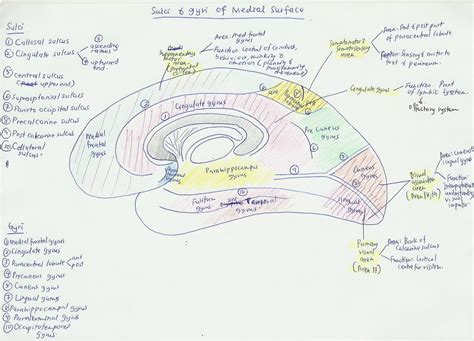 Sulci & gyri of Medial Surface
Sulci
① Callosal sulcus
② Cingulate sulcus
③ ascending ramus
④ upturned end
⑤ Central sulcus
(upper end)
⑥ Suprasplenial sulcus
⑦ Parieto occipital sulcus
⑧ Precalcarine sulcus
⑨ Post calcarine sulcus
⑩ Collateral sulcus
Area: med frontal gyrus
Supplementary Motor area
Function: control of conduct,
behaviour, thinking &
emotion
Somatomotor & Somatosensory area
Area: Part of post part
of paracentral lobule
Sensory & motor to
foot & perineum.
Cingulate gyrus
Function: Part of
limbic system
Olfactory system
Cingulate gyrus
Pre Cuneus gyrus
Medial frontal gyrus
Parahippocampus gyrus
Cuneus gyrus
Lingual gyrus
Fusiform gyrus
Temporal gyrus
Visual association area
(Area 18, 19)
Function:
Primary visual area
(Area 17)
Area: Bank of
calcarine sulcus
Function: cortical
centre for vision.
Gyri
① Medial frontal gyrus
② Cingulate gyrus
③ Paracentral lobule ant post
④ Precuneus gyrus
⑤ Cuneus gyrus
⑦ Lingual gyrus
⑧ Parahippocampal gyrus
⑨ Paraterminal gyrus
⑩ Occipitotemporal gyrus